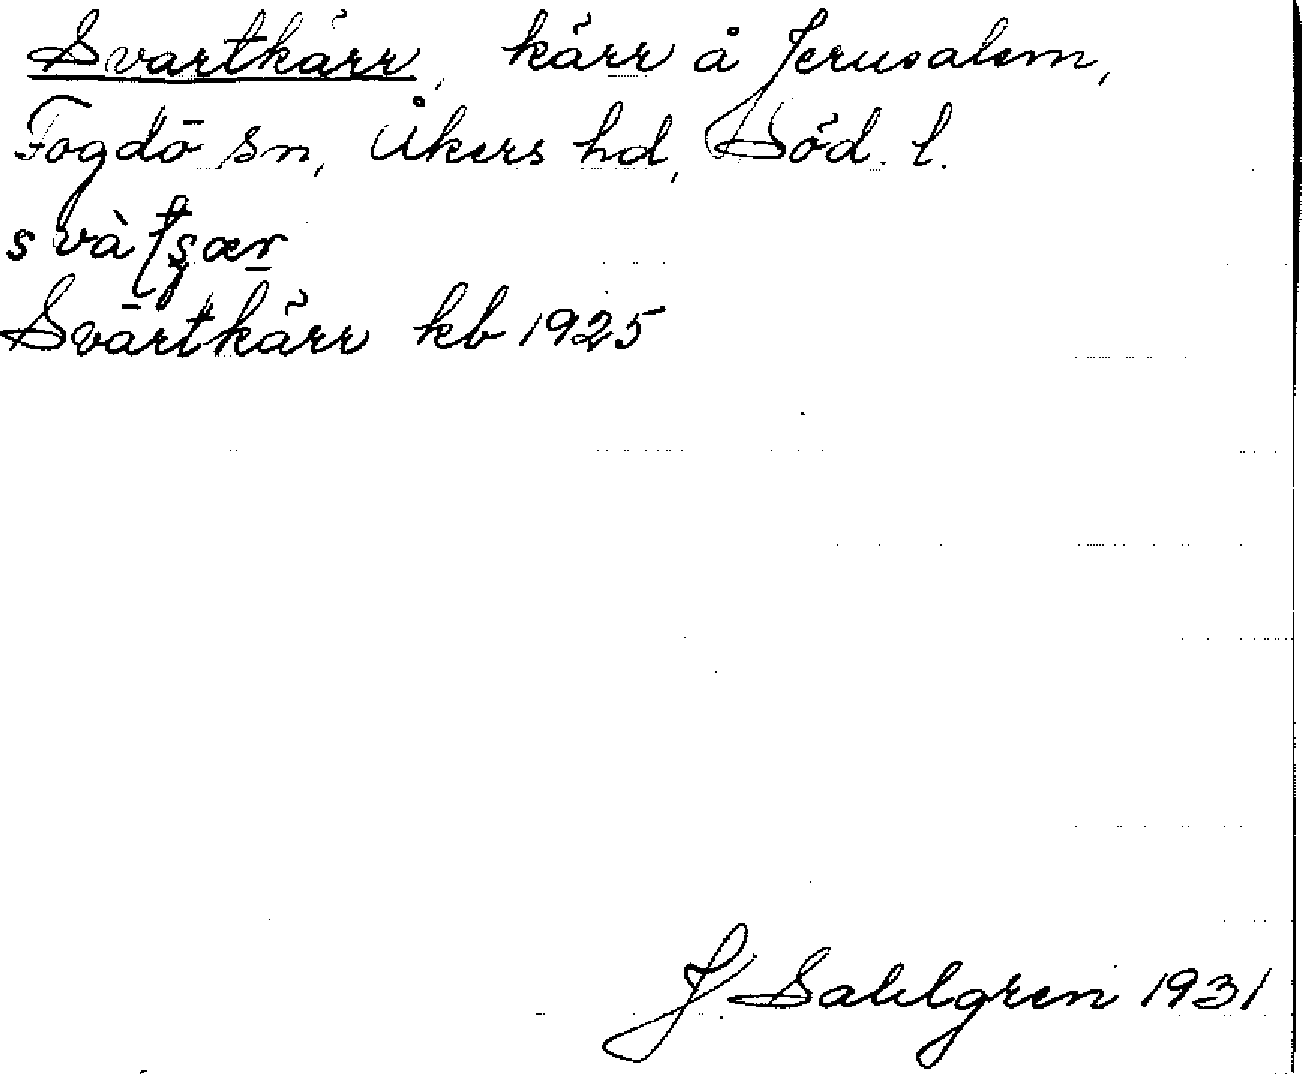 Svartkärr, kärr å Jerusalem,
Fogdö sn, Åkers hd, Söd. l.
Svartkärr kb 1925
J Sahlgren 1931